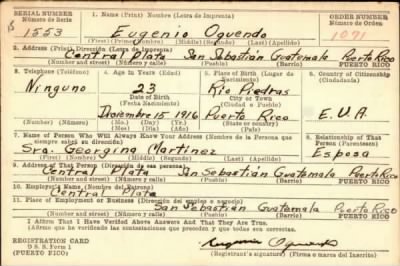 SERIAL NUMBER
Número de Serie
1. Name (Print) Nombre (Letra de Imprenta)
ORDER NUMBER
Número de Orden
1553
Eugenio Oquendo
1091
(First) (Primero) (Middle) (Segundo) (Last) (Apellido)
2. Address (Print) Dirección (Letra de Imprenta)
Central Plata San Sebastian Guatemala Puerto Rico
Number and street (Número y calle) (Town) (Pueblo) PUERTO RICO
3. Telephone (Teléfono)
4. Age in Years (Edad)
5. Place of Birth (Lugar de Nacimiento)
6. Country of Citizenship (Ciudadanía)
Ninguno
23
Rio Piedras
Date of Birth
(Fecha Nacimiento)
Town or City
(Ciudad o Pueblo)
Diciembre 15 1916
Puerto Rico
E.U.A.
Number (Número)
(Mo.) (Mes) (Day) (Día) (Yr.) (Año)
State or country
(Estado o país)
7. Name of Person Who Will Always Know Your Address (Nombre de la Persona que siempre sabrá su dirección)
8. Relationship of That Person (Parentesco)
Sra. Georgina Martinez
Esposa
(First) (Primero) (Middle) (Segundo) (Last) (Apellido)
9. Address of That Person (Dirección de esa persona)
Central Plata San Sebastian Guatemala Puerto Rico
Number and street (Número y calle) (Town) (Pueblo) PUERTO RICO
10. Employer's Name (Nombre del Patrono)
Central Plata
11. Place of Employment or Business (Dirección del empleo o negocio)
San Sebastian Guatemala Puerto Rico
Number and street (Número y calle) (Town) (Pueblo) PUERTO RICO
I Affirm That I Have Verified Above Answers and That They Are True.
Afirmo que he verificado las contestaciones que preceden y que todas son correctas.
REGISTRATION CARD
D. S. S. Form 1
(PUERTO RICO)
Eugenio Oquendo
Registrant's signature (Firma o marca del Inscrito)